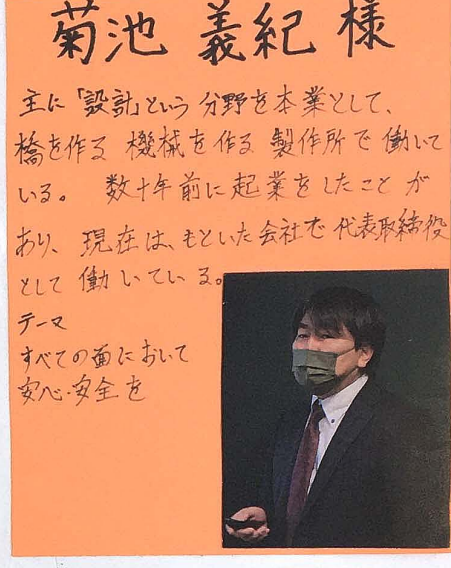 菊池 義紀 様
主に「設計」という分野を本業として、
橋を作る 機械を作る 製作所で働いて
いる。 数十年前に起業をしたことが
あり、現在は、もといた会社で代表取締役
として働いている。
テーマ
すべての面において
安心・安全を